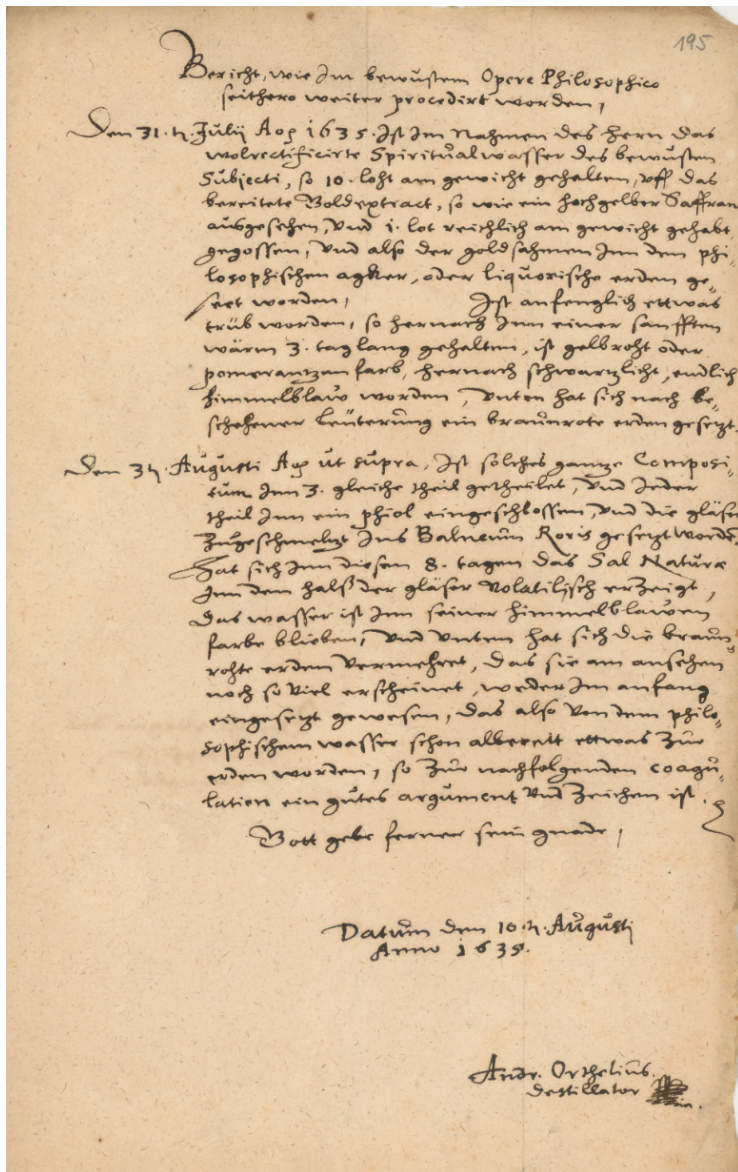 195
Bericht, wie Im bewustem Opere Philosophico
seithero weiter procedirt worden,
Den 31. t. Julij Aoꝫ 1635. Ist Im Nahmen des Hern das
wolrectificirte Spiritualwasser des bewusten
Subjecti, so 10. loht am gewicht gehalten, vff das
bereitete Goldextract, so wie ein hochgelber Saffran
ausgesehen, vnd 1. lot reichlich am gewicht gehabt,
gegossen, vnd also der goldsahmen Inn dem phi-
losophischen agker, oder liquorische erden ge-
seet worden, Ist anfenglich ettwas
trüb worden, so hernach Inn einer sanfften
wärm 3. tag lang gehalten, ist gelbroht oder
pomerantzen farb, hernach schwartzlicht, endlich
himmelblaw worden, vnten hat sich nach be-
schehener Leuterung ein braunrote erden gesetzt.
Den 3t. Augusti Aoꝫ ut supra, Ist solches gantze Composi-
tum Inn 3. gleiche theil getheilet, vnd Jeder
theil Inn ein phiol eingeschlossen, vnd die gläser
zugeschmeltzt Ins Balneum Roris gesetzt worden,
Hat sich Inn diesen 8. tagen das Sal Naturæ
Inn dem halß der gläser volatilisch erzeigt,
Das wasser ist Inn seiner himmelblawen
farbe blieben, vnd vnten hat sich die braun-
rohte erden vermehret, das sie am ansehen
noch so viel erscheinet, weder Im anfang
eingesetzt gewesen, das also von dem philo-
sophischem wasser schon albereit ettwas zur
erden worden, so zur nachfolgenden coagu-
lation ein gutes argument vnd zeichen ist.
Gott gebe ferner sein gnade,
Datum den 10. t. Augustj
Anno 1635.
Andr. Orthelius.
Destillator